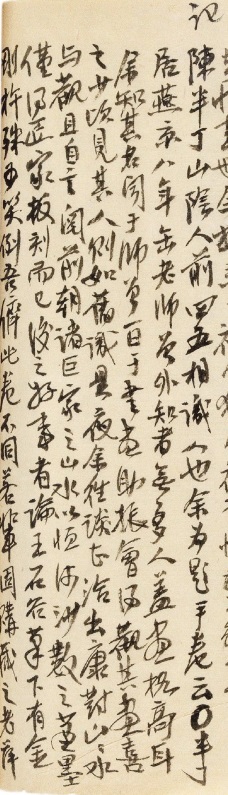 記
陳半丁山陰人前四五相識人也余為題手卷云○半丁
居燕京八年缶老師曾外知者無多人蓋畫格高耳
余知其名聞于師曾一日于書畫助振會得觀其畫喜
之少頃見其人則如舊識是夜余往談甚洽出康對山山水
與觀且自言閱前朝諸巨家之山水以恒河沙數之筆墨
僅得匠家板刻而已後之好事者論王石谷筆下有金
剛杵殊可笑倒吾儕此卷不同若輩固購藏之老萍